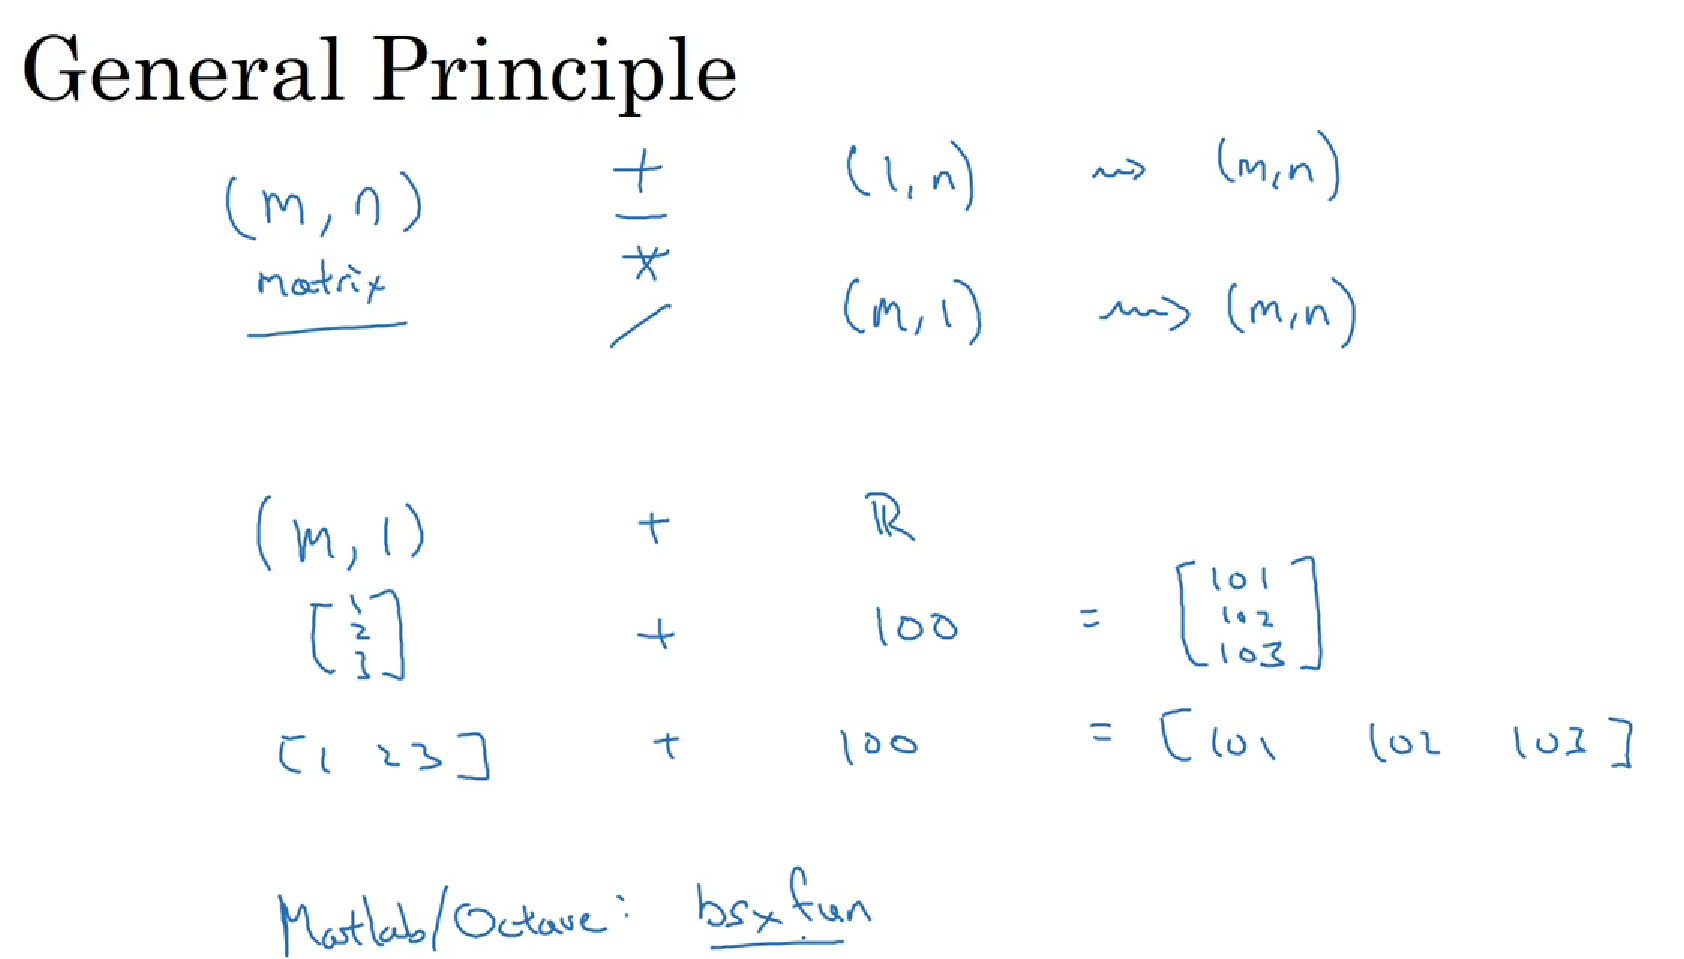 General Principle
(m, n) + (1, n) ⇝ (m, n)
matrix − * / (m, 1) ⇝ (m, n)
(m, 1) + ℝ
[1 2 3] + 100 = [101 102 103]
[1 2 3] + 100 = [101 102 103]
Matlab/Octave: bsxfun